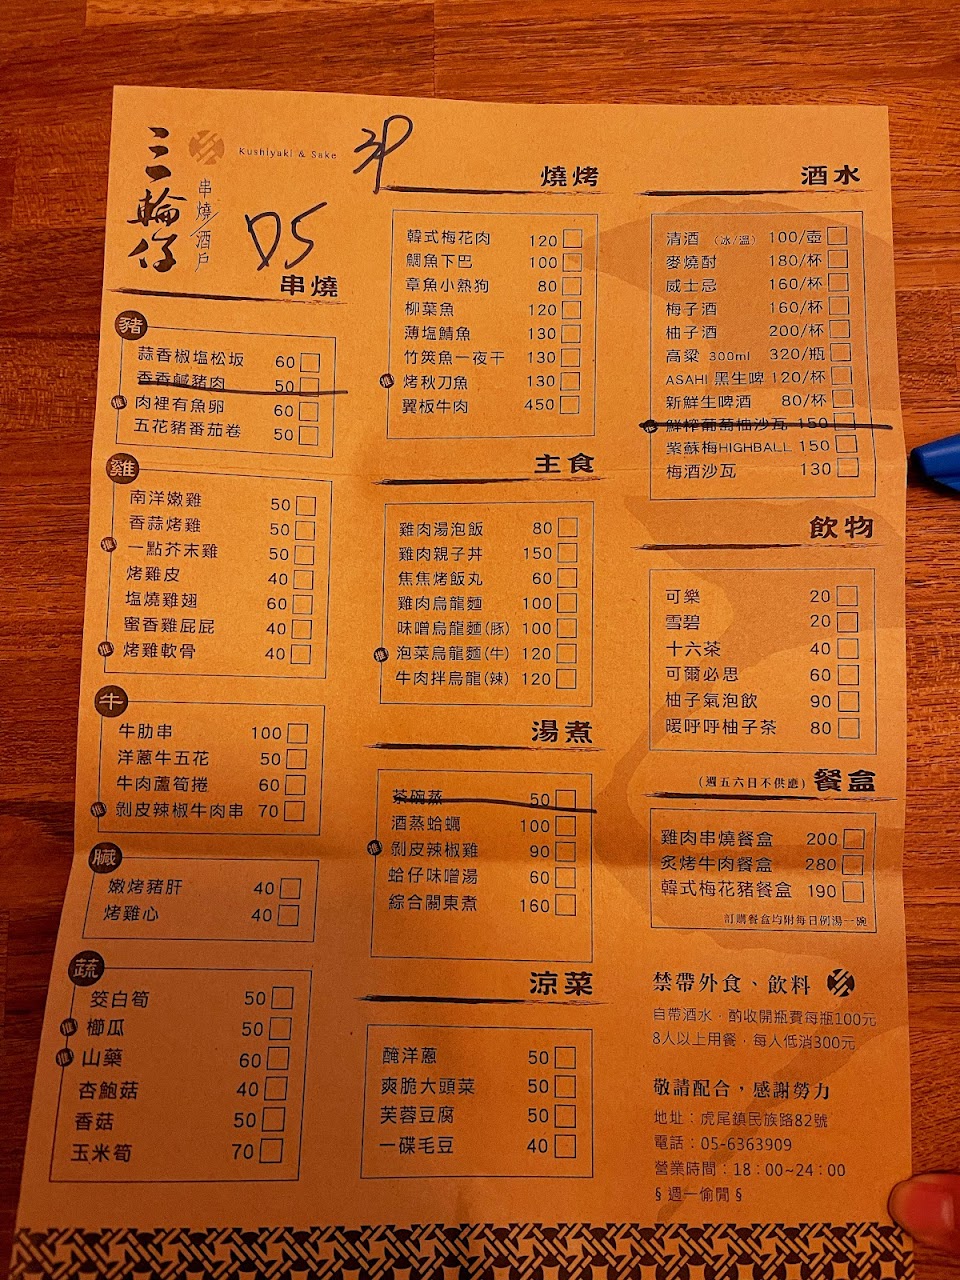 三輪仔
Kushiyaki & Sake
串燒/酒戶
3P
D5
串燒
豬
蒜香椒塩松坂 60
香香鹹豬肉 50
推 肉裡有魚卵 60
五花豬番茄卷 50
雞
南洋嫩雞 50
香蒜烤雞 50
推 一點芥末雞 50
烤雞皮 40
塩燒雞翅 60
蜜香雞屁屁 40
推 烤雞軟骨 40
牛
牛肋串 100
洋蔥牛五花 50
牛肉蘆筍捲 60
推 剝皮辣椒牛肉串 70
臟
嫩烤豬肝 40
烤雞心 40
蔬
筊白筍 50
推 櫛瓜 50
推 山藥 60
杏鮑菇 40
香菇 50
玉米筍 70
燒烤
韓式梅花肉 120
鯛魚下巴 100
章魚小熱狗 80
柳葉魚 120
薄塩鯖魚 130
竹筴魚一夜干 130
推 烤秋刀魚 130
翼板牛肉 450
主食
雞肉湯泡飯 80
雞肉親子丼 150
焦焦烤飯丸 60
雞肉烏龍麵 100
味噌烏龍麵(豚) 100
推 泡菜烏龍麵(牛) 120
牛肉拌烏龍(辣) 120
湯煮
茶碗蒸 50
酒蒸蛤蠣 100
推 剝皮辣椒雞 90
蛤仔味噌湯 60
綜合關東煮 160
涼菜
醃洋蔥 50
爽脆大頭菜 50
芙蓉豆腐 50
一碟毛豆 40
酒水
清酒 (冰/溫) 100/壺
麥燒酎 180/杯
威士忌 160/杯
梅子酒 160/杯
柚子酒 200/杯
高粱 300ml 320/瓶
ASAHI 黑生啤 120/杯
新鮮生啤酒 80/杯
推 鮮榨葡萄柚沙瓦 150
紫蘇梅HIGHBALL 150
梅酒沙瓦 130
飲物
可樂 20
雪碧 20
十六茶 40
可爾必思 60
柚子氣泡飲 90
暖呼呼柚子茶 80
(週五六日不供應) 餐盒
雞肉串燒餐盒 200
炙烤牛肉餐盒 280
韓式梅花豬餐盒 190
訂購餐盒均附每日例湯一碗
禁帶外食、飲料
自帶酒水，酌收開瓶費每瓶100元
8人以上用餐，每人低消300元
敬請配合，感謝勞力
地址：虎尾鎮民族路82號
電話：05-6363909
營業時間：18：00~24：00
§ 週一偷閒 §